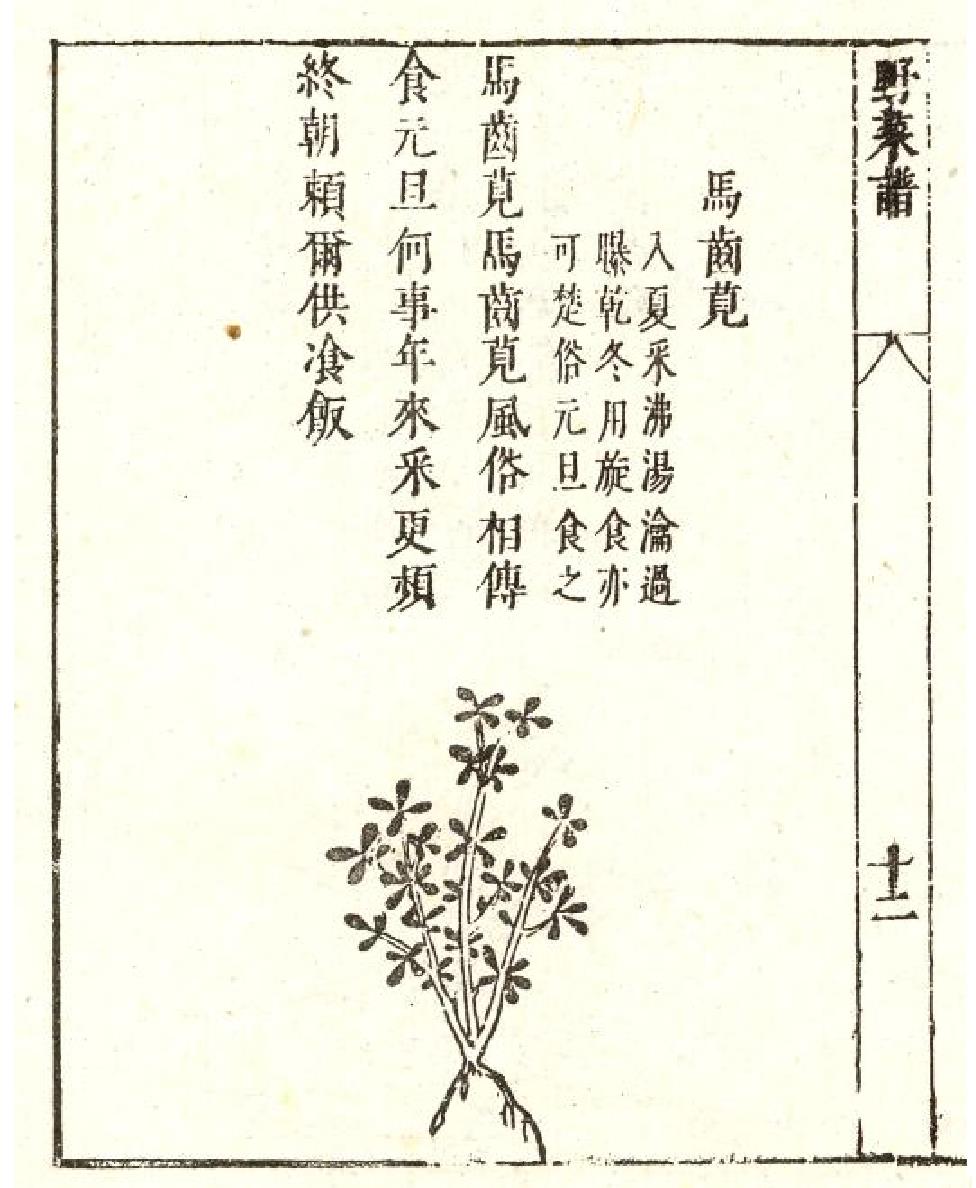 野菜譜
十二
馬齒莧
入夏采沸湯瀹過
曝乾冬用旋食亦
可楚俗元旦食之
馬齒莧馬齒莧風俗相傳
食元旦何事年來采更頻
終朝頼爾供飡飯